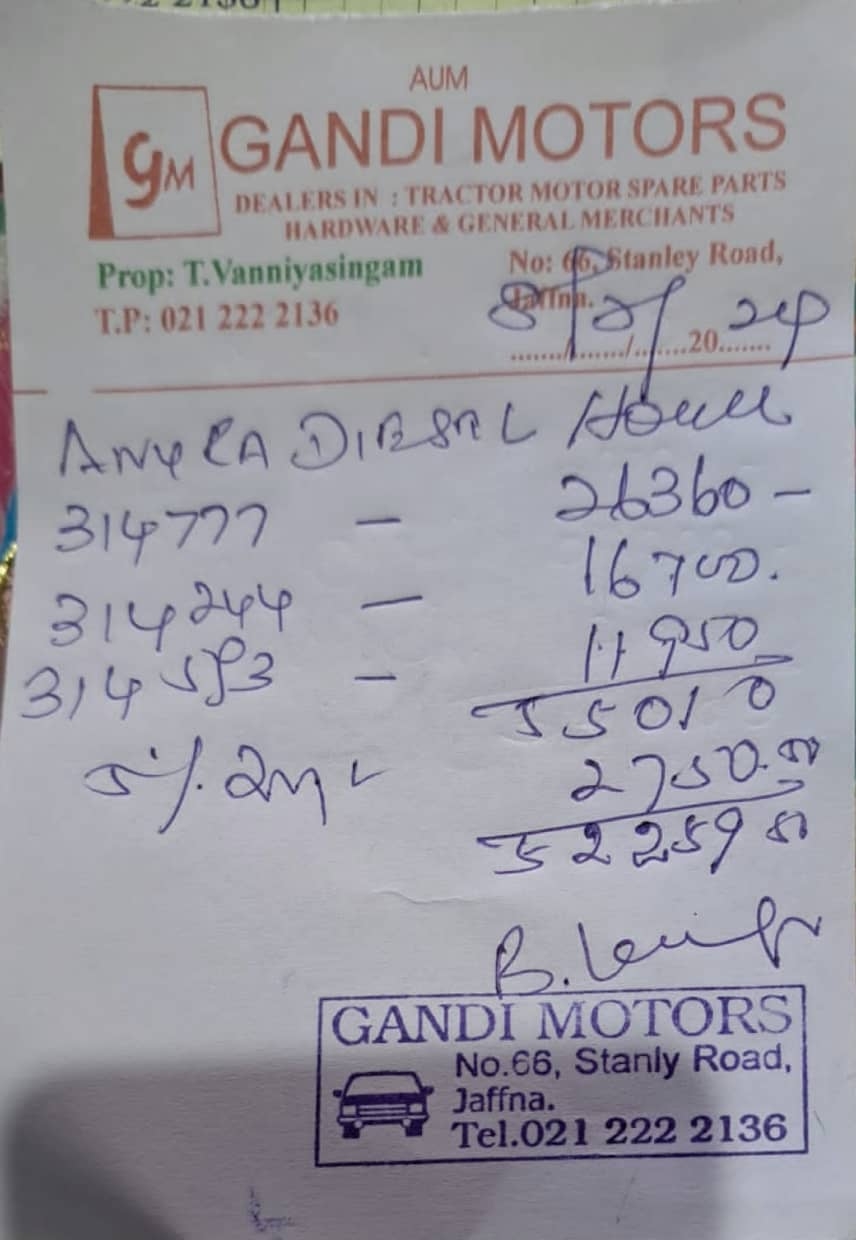 AUM
GM
GANDI MOTORS
DEALERS IN : TRACTOR MOTOR SPARE PARTS
HARDWARE & GENERAL MERCHANTS
Prop: T.Vanniyasingam
No: 66, Stanley Road,
Jaffna.
T.P: 021 222 2136
8/2/2024
ANURA DIESEL House
314777 - 26360 -
314244 - 16700.
314593 - 11950
55010
5%. 2750.50
52259 50
GANDI MOTORS
No.66, Stanly Road,
Jaffna.
Tel.021 222 2136